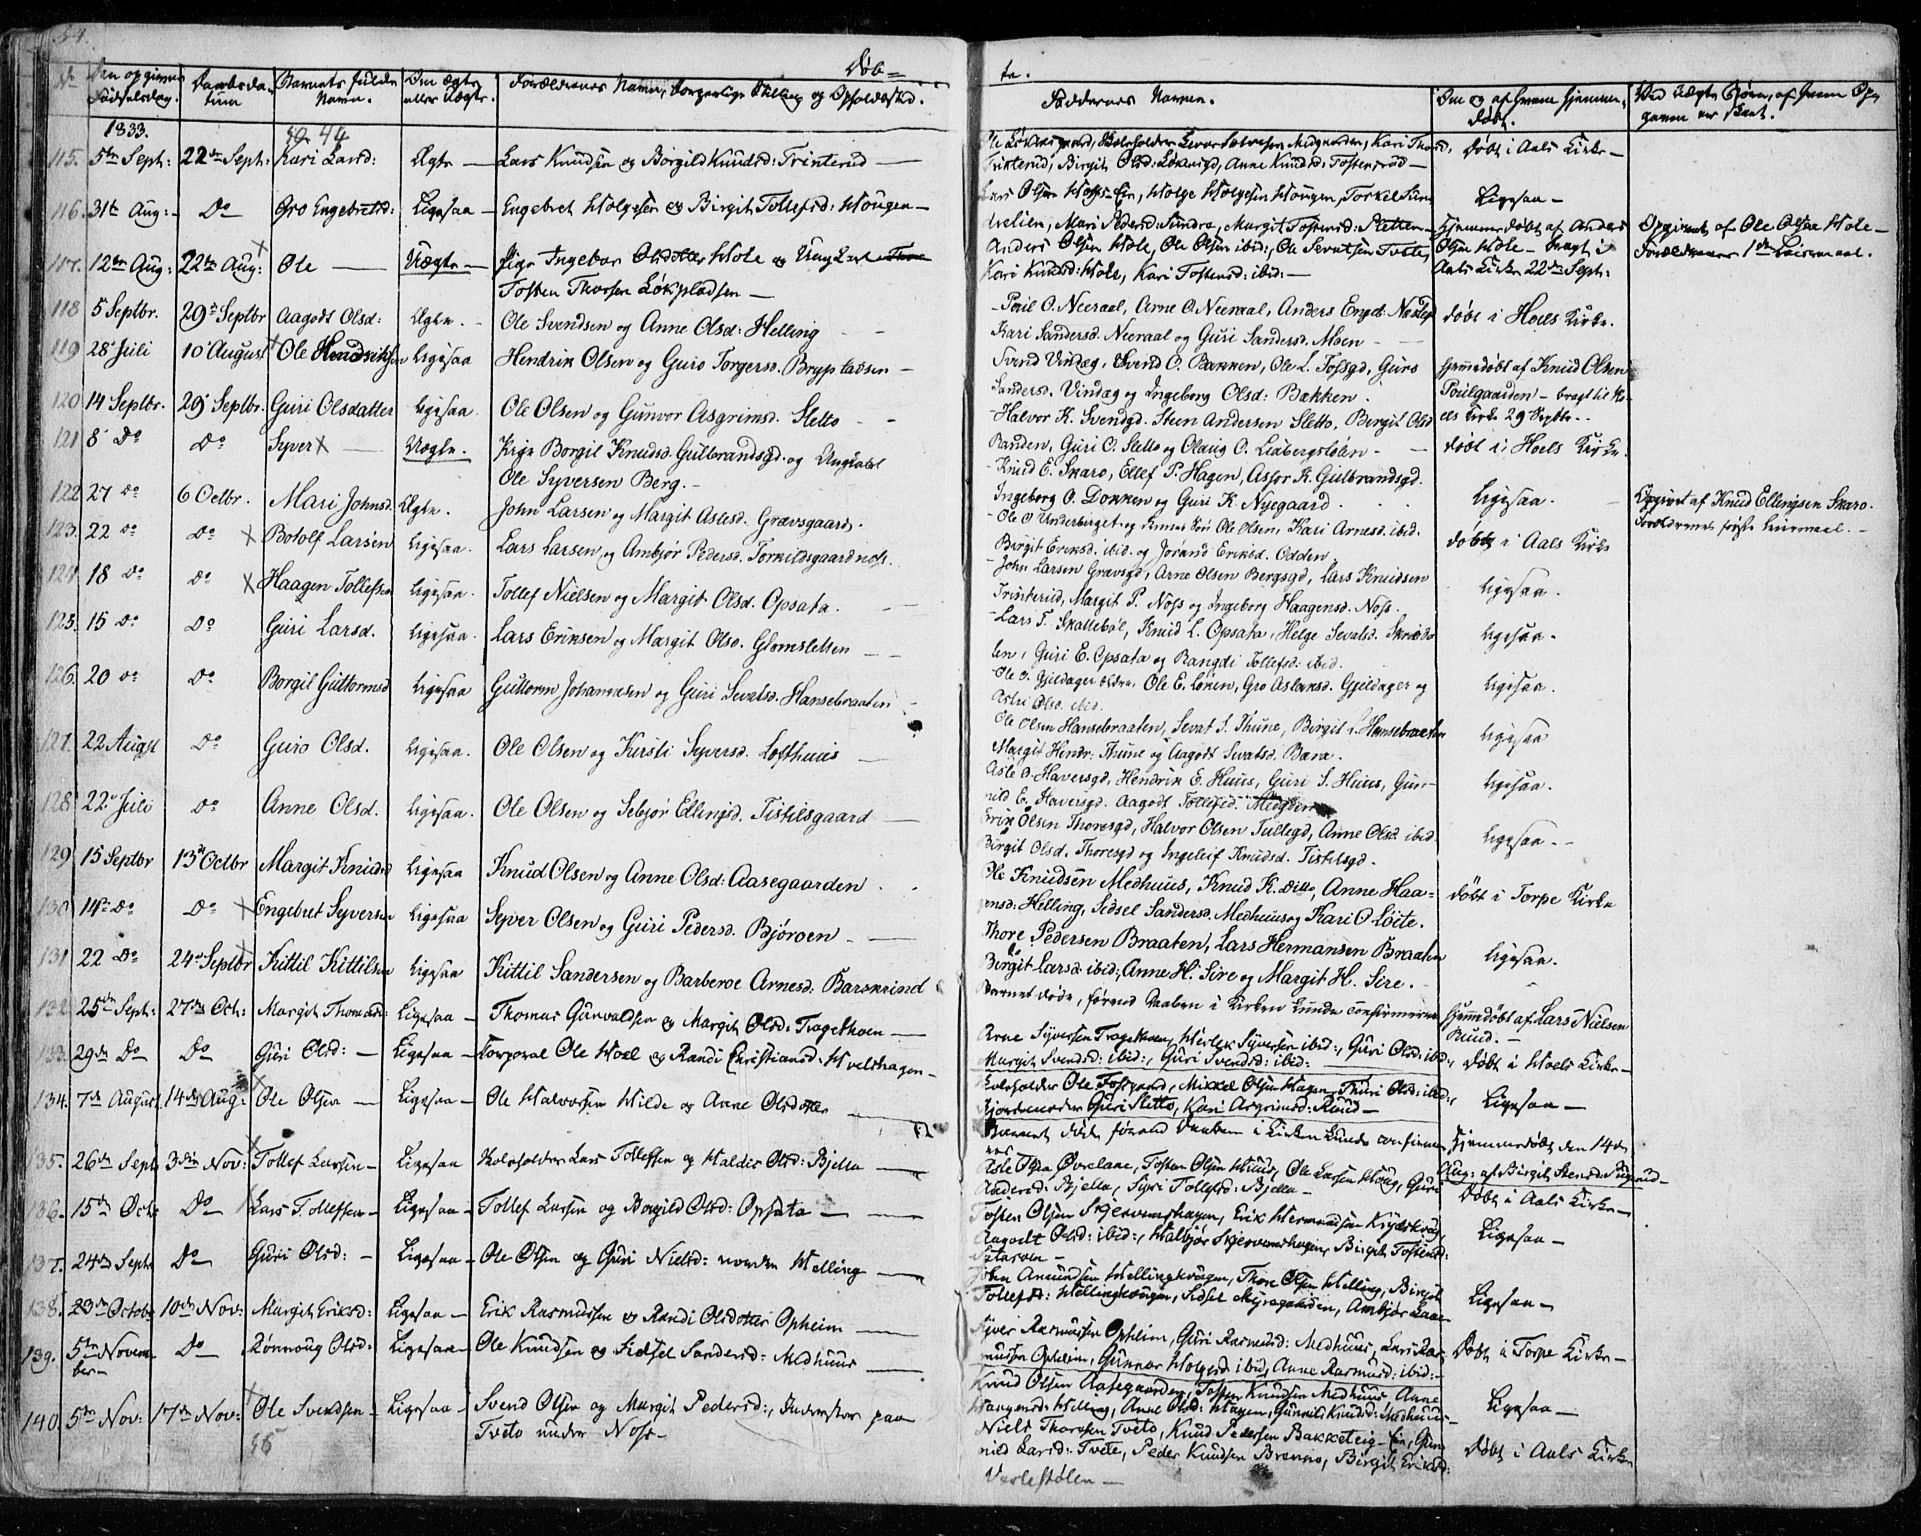 54.
Døb=
No
Den opgivne Fødselsdag.
Daabsdatum
Barnets fulde Navn.
Om ægte eller Uægte.
Forældrenes Navn, borgerlige Stilling og Opholdssted.
1833.
44
115. 5te Sept: 22de Sept: Kari Larsd: Ægte — Lars Knudsen og Borgild Knudsd: Trinterud —
116. 31te Aug: Do Gro Engebretsd: Ligesaa — Engebret Holgesen og Birgit Tollefsd: Hougen —
117. 12te Aug: 22de Aug: Ole — Uægte — Pige Ingebor Olsdatter Hole og Ungkarl
Tosten Thorsen Løkpladsen —
118 5 Septbr. 29de Septbr Aagodt Olsd: Ægte. Ole Svendsen og Anne Olsd: Helling
119 28 Juli 10 August Ole Hendriksen Ligesaa Hendrik Olsen og Guro Torgersd. Brypladsen —
120 14 Septbr. 29 Septbr. Guri Olsdatter Ligesaa. Ole Olsen og Gunvor Asgrimsd. Sletto
121 8 Do Do Syver — Uægte. Pige Borgil Knudsd. Gulbrandsgd. og Ungkarl
Ole Syversen Berg. —
122 27 Do 6 Octbr. Mari Johnsd. Ægte. John Larsen og Margit Aslesd. Grævsgaard.
123. 22 Do Do Botolf Larsen Ligesaa. Lars Larsen og Ambjør Pedersd. Torkildsgaard noss.
124 18 Do Do Haagen Tollefsen Ligesaa. Tollef Nielsen og Margit Olsd. Opsata.
125. 15 Do Do Guri Larsd. Ligesaa. Lars Eriksen og Margit Olsd. Glomsletten
126. 20 Do Do Borgil Guttormsd Ligesaa Guttorm Johannesen og Guri Sevatsd. Hansebraaten
127. 22 August Do Guro Olsd. Ligesaa. Ole Olsen og Kirsti Syversd. Lofthuus
128 22 Juli Do Anne Olsd. Ligesaa. Ole Olsen og Sebjør Ellingsd. Tistilsgaard
129 15 Septbr 13de Octbr Margit Knudsd Ligesaa Knud Olsen og Anne Olsd: Aasegaarden
130 14 Do Do Engebret Syversen Ligesaa Syver Olsen og Guri Pedersd. Bjøroen
131 22 Do 24 Septbr Kittil Kittilsen Ligesaa Kittil Sandersen og Barberoe Arnesd: Barskrind
132. 25de Sept: 27de Oct: Margit Thomasd: Ligesaa — Thomas Gunvaldsen og Margit Olsd: Tragethoen —
133. 29de Do Do Guri Olsd: — Ligesaa — Corporal Ole Hoel og Randi Christiansd: Hvelshagen —
134. 7de August 14de Aug: Ole Olsen — Ligesaa — Ole Halvorsen Hilde og Anne Olsdatter
135. 26de Sept 3die Nov: Tollef Larsen — Ligesaa Lars Tollefsen og Haldis Olsd: Bjella —
136. 15de Octb Do Lars Tollefsen — Ligesaa — Tollef Larsen og Borgild Olsd: Opsata —
137. 24de Sept. Do Guri Olsd: — Ligesaa — Ole Olsen og Guri Nielsd: nordre Helling —
138. 23de Octobr 10de Nov: Margit Eriksd: Ligesaa — Erik Rasmussen og Randi Olsdatter Opheim —
139. 5te November — Do Rønnoug Olsd: Ligesaa — Ole Knudsen og Sidsel Sandersd: Medhuus —
140. 5te Nov: 17de Nov: Ole Svendsen — Ligesaa — Svend Olsen og Margit Pedersd:, Inderster paa
Tveto under Noss —
te.
Faddernes Navne.
Om og af hvem hjemmedøbt.
Ved uægte Børn, af hvem Opgaven er skeet.
Døbt i Aals Kirke —
Trinterud, Birgit Olsd: Anne Knudsd:
Lars Olsen Hofs-Eie, Holge Holgesen Hougen, Torkel Sun
Ligesaa —
velien, Mari Pedersd: Sundre, Margit Tostensd: Sletten —
Hjemmedøbt af Anders
Anders Olsen Hole, Ole Olsen ibid:, Ole Sevatsen Tveto,
Olsen Hole — bragt i
Kari Knudsd: Hole, Kari Tostensd: ibid: —
Aals Kirke 22de Sept:
Opgivet af Ole Olsen Hole —
Forældrenes 1ste Leiermaal.
Poul O. Neeraal, Arne O. Neeraal, Anders Engd:
Døbt i Hoels Kirke.
Kari Sandersd. Neeraal og Guri Sandersd. Moen
Svend Vindæg, Svend O. Bakken, Ole L. Fossgd, Guro
Hjemmedøbt af Knud Olsen
Sandersd. Vindæg og Ingeborg Olsd: Bækken.
Poulgaarden — bragt til Ho
Halvor K. Svendsgd. Steen Andersen Sletto, Bergit Olsd
els Kirke 29 Septbr.
Randen, Guri O. Sletto og Olaug O. Lidbergstølen
døbt i Hoels Kirke.
Knud E. Skaro, Ellef P. Hagen, Asfor K. Gulbrandsgd.
Ingeborg O. Dokken og Guri K. Nyegaard.
Ligesaa.
Opgivet af Knud Ellingsen Skaro.
Forældrenes første Leiermaal. —
Ole O Underberget og Kone Ole Olsen, Kari Arnesd. ibid.
døbt i Aals Kirke
Birgit Eriksd. ibid. og Jørand Eriksd. Odden
John Larsen Grævsgd, Arne Olsen Bergsgd, Lars Knudsen
Ligesaa.
Trinterud, Margit P. Noss og Ingeborg Haagensd. Noss.
Lars T. Skallebøl, Knud L. Opsata, Helge Sevatsd.
Ligesaa.
len, Guri E. Opsata og Rangdi Tollefsd: ibid.
Ole O. Gjeldager Ole E. Løken, Gro Aslaksd. Gjeldager og
Ligesaa.
Astri Olsd. ibid.
Ole Olsen Hansebraaten, Sevat S. Thune, Birgit L. Hansebraaten
Ligesaa
Margit Hendr. Thune og Aagodt Sevatsd. Bæra.
Asle O. Haversgd, Hendrik E. Huus, Guri S. Huus, Gun-
Ligesaa.
nild E. Haversgd. Aagodt Tollefsd. Medlien
Erik Olsen Thoresgd, Halvor Olsen Tullegd, Anne Olsd ibid.
Ligesaa. —
Birgit Olsd. Thoresgd og Ingeleif Knudsd. Tistilsgd.
Ole Knudsen Medhuus, Knud K. ditto, Anne Haa=
døbt i Torpe Kirke
gensd: Helling, Sidsel Sandersd. Medhuus og Kari O. Løite.
Thore Pedersen Braaten, Lars Hermansen Braaten
Ligesaa.
Birgit Larsd: ibid:, Anne H. Sire og Margit H. Sire.
Barnet døde, førend Daaben i Kirken kunde confirmeres
Hjemmedøbt af Lars Nielsen
Ruud. —
Arne Syversen Tragethoen, Herlek Syversen ibid:, Guri Olsd: ibid:,
Døbt i Hoels Kirke —
Margit Svendsd: ibid:, Guri Svendsd: ibid:
Ole Fossgaard, Mikkel Olsen Hagen, Thuri Olsd: ibid:,
Ligesaa —
Guri Sletto, Kari Asgrimsd: Ruud —
Barnet døde førend Daaben i Kirken kunde confirme-
res
Hjemmedøbt den 14de
Aug: af Birgit Steensd:
Asle Øvrelane, Tosten Olsen Huus, Ole Larsen Houg, Guri
Andersd: Bjella, Siri Tollefsd: Bjella —
Døbt i Aals Kirke —
Tosten Olsen Skjervenshagen, Erik Hermundsen
Ligesaa —
Aagodt Olsd: ibid:, Halbjør Skjervenshagen, Birgit Tostensd:
John Amundsen Hellingkroken, Thore Olsen Helling, Birgit
Ligesaa —
Tollefsd: Sidsel Ambjør
Syver Rasmussen Opheim, Guri Rasmusd: Medhuus, Lars Ras-
Døbt i Torpe Kirke —
mussen Opheim, Gunnor Holgersd: ibid:, Anne Rasmusd: ibid: —
Knud Olsen Aasegaarden, Tosten Knudsen Medhuus, Anne
Ligesaa —
Haagensd: Helling, Anne Olsd: Hagen, Gunnild Knudsd: Medhuus —
Niels Thorsen Tveto, Knud Pedersen Bakketeig-Eie, Gun
Døbt i Aals Kirke
nild Larsd: Tveto, Peder Knudsen Brenno, Birgit Eriksd:
Veslestølen —